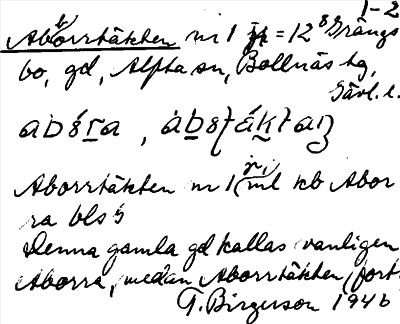 1-2
Aborrtäkten nr 1 = 12 Grängs
bo, gd, Alfta sn, Bollnäs tg,
Gävl. l.
Aborrtäkten nr 1 ml kb Abor
ra bls 5
Denna gamla gd kallas vanligen
Aborra, medan Aborrtäkten (fort.
G. Birgerson 1946